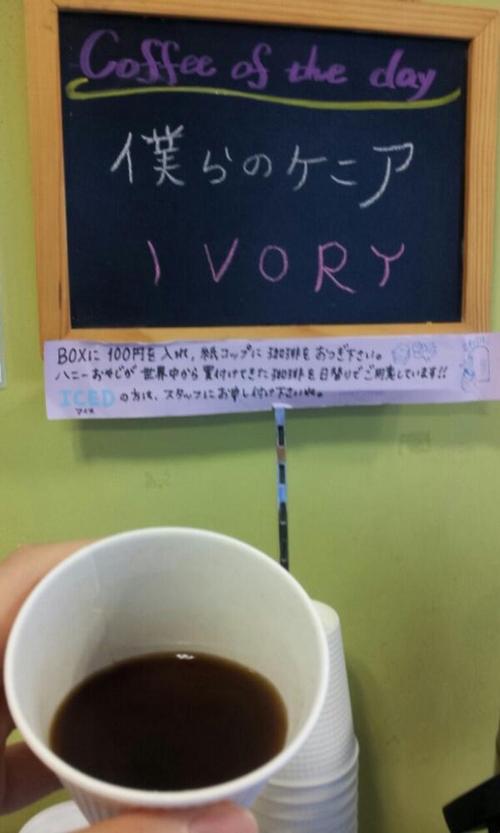 Coffee of the day
僕らのケニア
IVORY
BOXに100円を入れ、紙コップに珈琲をおつぎ下さい。
ハニーおやじが世界中から買付けてきた珈琲を日替りでご用意しています!!
ICEDの方は、スタッフにお申し付け下さいね。
アイス